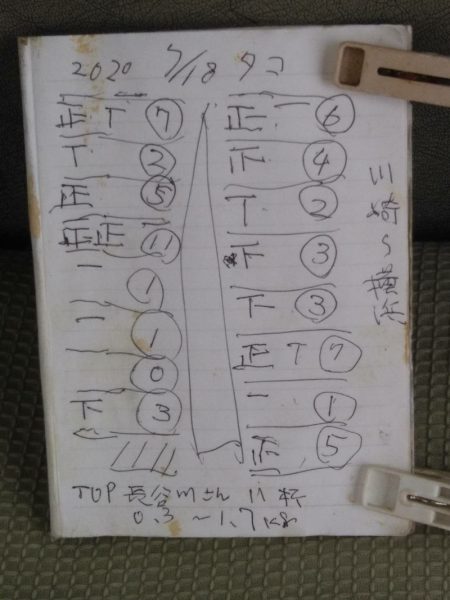 2020 7/18 タコ
正 T ⑦
T ②
正 ⑤
正 正 一 ⑪
一 ①
一 ①
⓪
下 ③
正 一 ⑥
④
T ②
下 ③
下 ③
正 T ⑦
一 ①
正 ⑤
川崎〜横浜
TOP 長谷川さん 11杯
0.3〜1.7kg